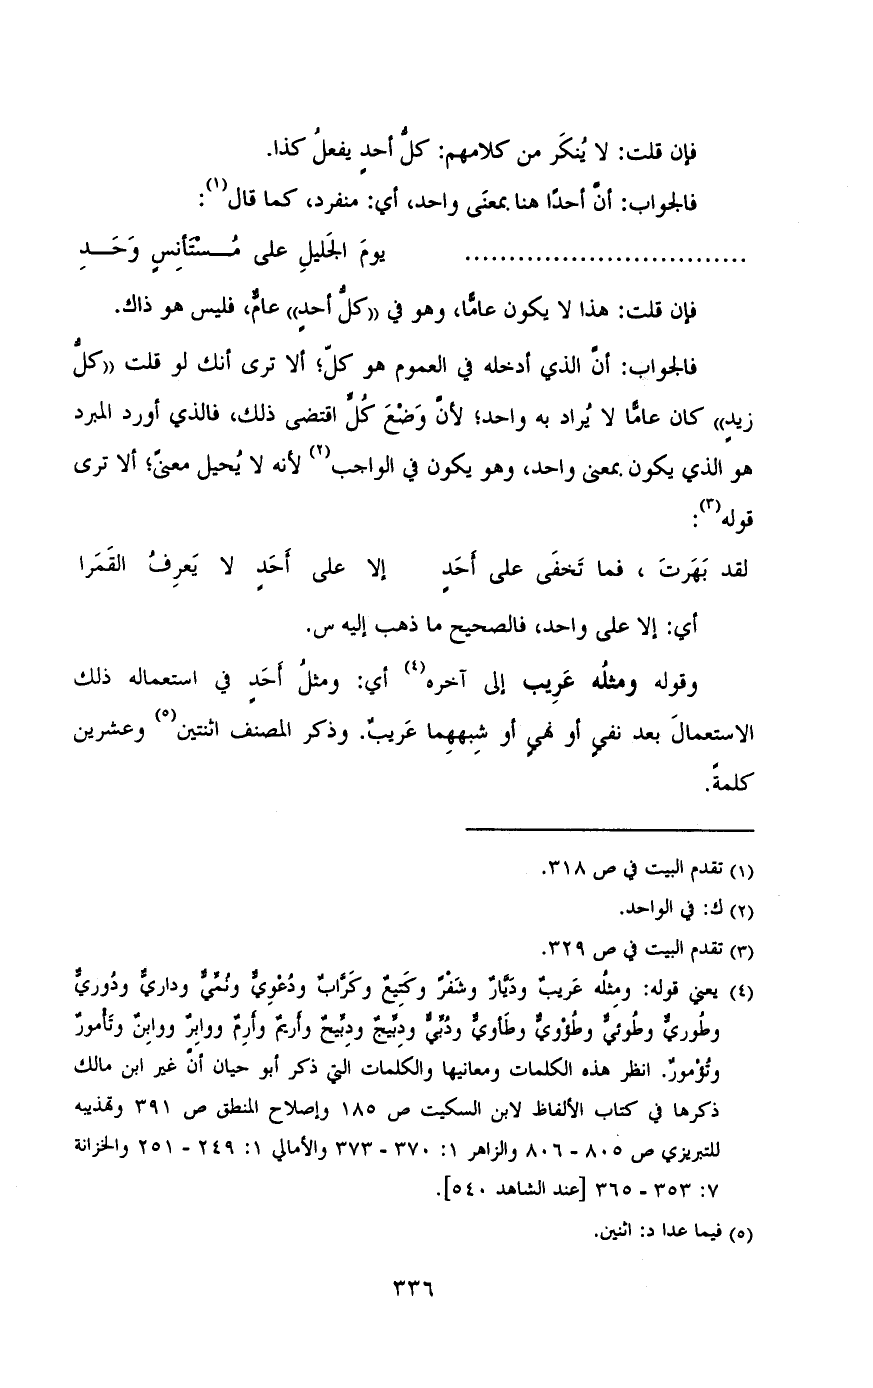 فإن قلت: لا يُنكَر من كلامهم: كلُّ أحدٍ يفعلُ كذا.
فالجواب: أنَّ أحدًا هنا بمعنَى واحد، أي: منفرد، كما قال(١):
................................ يومَ الجَليلِ على مُـسْتَأنِسٍ وَحَـدِ
فإن قلت: هذا لا يكون عامًّا، وهو في «كلُّ أحدٍ» عامٌّ، فليس هو ذاك.
فالجواب: أنَّ الذي أدخله في العموم هو كلّ؛ ألا ترى أنك لو قلت «كلُّ
زيدٍ» كان عامًّا لا يُراد به واحد؛ لأنَّ وَضْعَ كُلٍّ اقتضى ذلك، فالذي أورد المبرد
هو الذي يكون بمعنى واحد، وهو يكون في الواجب(٢) لأنه لا يُحيل معنىً؛ ألا ترى
قوله(٣):
لقد بَهَرتَ ، فما تَخفَى على أَحَدٍ إلا على أَحَدٍ لا يَعرِفُ القَمَرا
أي: إلا على واحد، فالصحيح ما ذهب إليه س.
وقوله ومثلُه عَرِيب إلى آخره(٤) أي: ومثلُ أَحَدٍ في استعماله ذلك
الاستعمالَ بعد نفيٍ أو نهيٍ أو شِبهِهما عَريبٌ. وذكر المصنف اثنتين(٥) وعشرين
كلمةً.
(١) تقدم البيت في ص ٣١٨.
(٢) ك: في الواحد.
(٣) تقدم البيت في ص ٣٢٩.
(٤) يعني قوله: ومثلُه عَريبٌ ودَيَّارٌ وشَفْرٌ وكَتِيعٌ وكَرَّابٌ ودُعْوِيٌّ ونُمِّيٌّ وداريٌّ ودُوريٌّ
وطُوريٌّ وطُوئيٌّ وطُؤْويٌّ وطَأويٌّ ودُبِّيٌّ ودبِّيجٌ ودبِّيحٌ وأَريمٌ وأَرِمٌ ووابِرٌ ووابِنٌ وتَأْمورٌ
وتُؤْمورٌ. انظر هذه الكلمات ومعانيها والكلمات التي ذكر أبو حيان أنَّ غير ابن مالك
ذكرها في كتاب الألفاظ لابن السكيت ص ١٨٥ وإصلاح المنطق ص ٣٩١ وتهذيبه
للتبريزي ص ٨٠٥ - ٨٠٦ والزاهر ١: ٣٧٠ - ٣٧٣ والأمالي ١: ٢٤٩ - ٢٥١ والخزانة
٧: ٣٥٣ - ٣٦٥ [عند الشاهد ٥٤٠].
(٥) فيما عدا د: اثنين.
٣٣٦